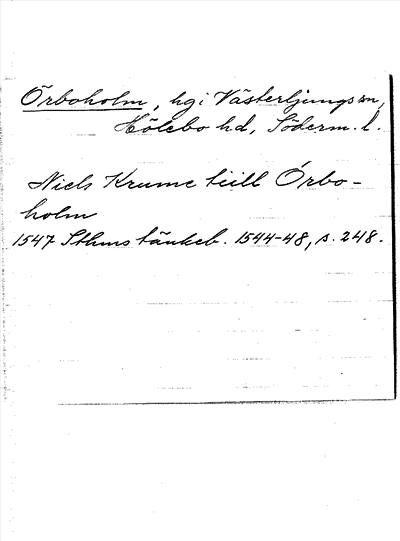 Örboholm, hg i Västerljungs sn,
Hölebo hd, Söderm. l.
Niels Krume tiill Örbo-
holm
1547 Sthms tänkeb. 1544-48, s. 248.